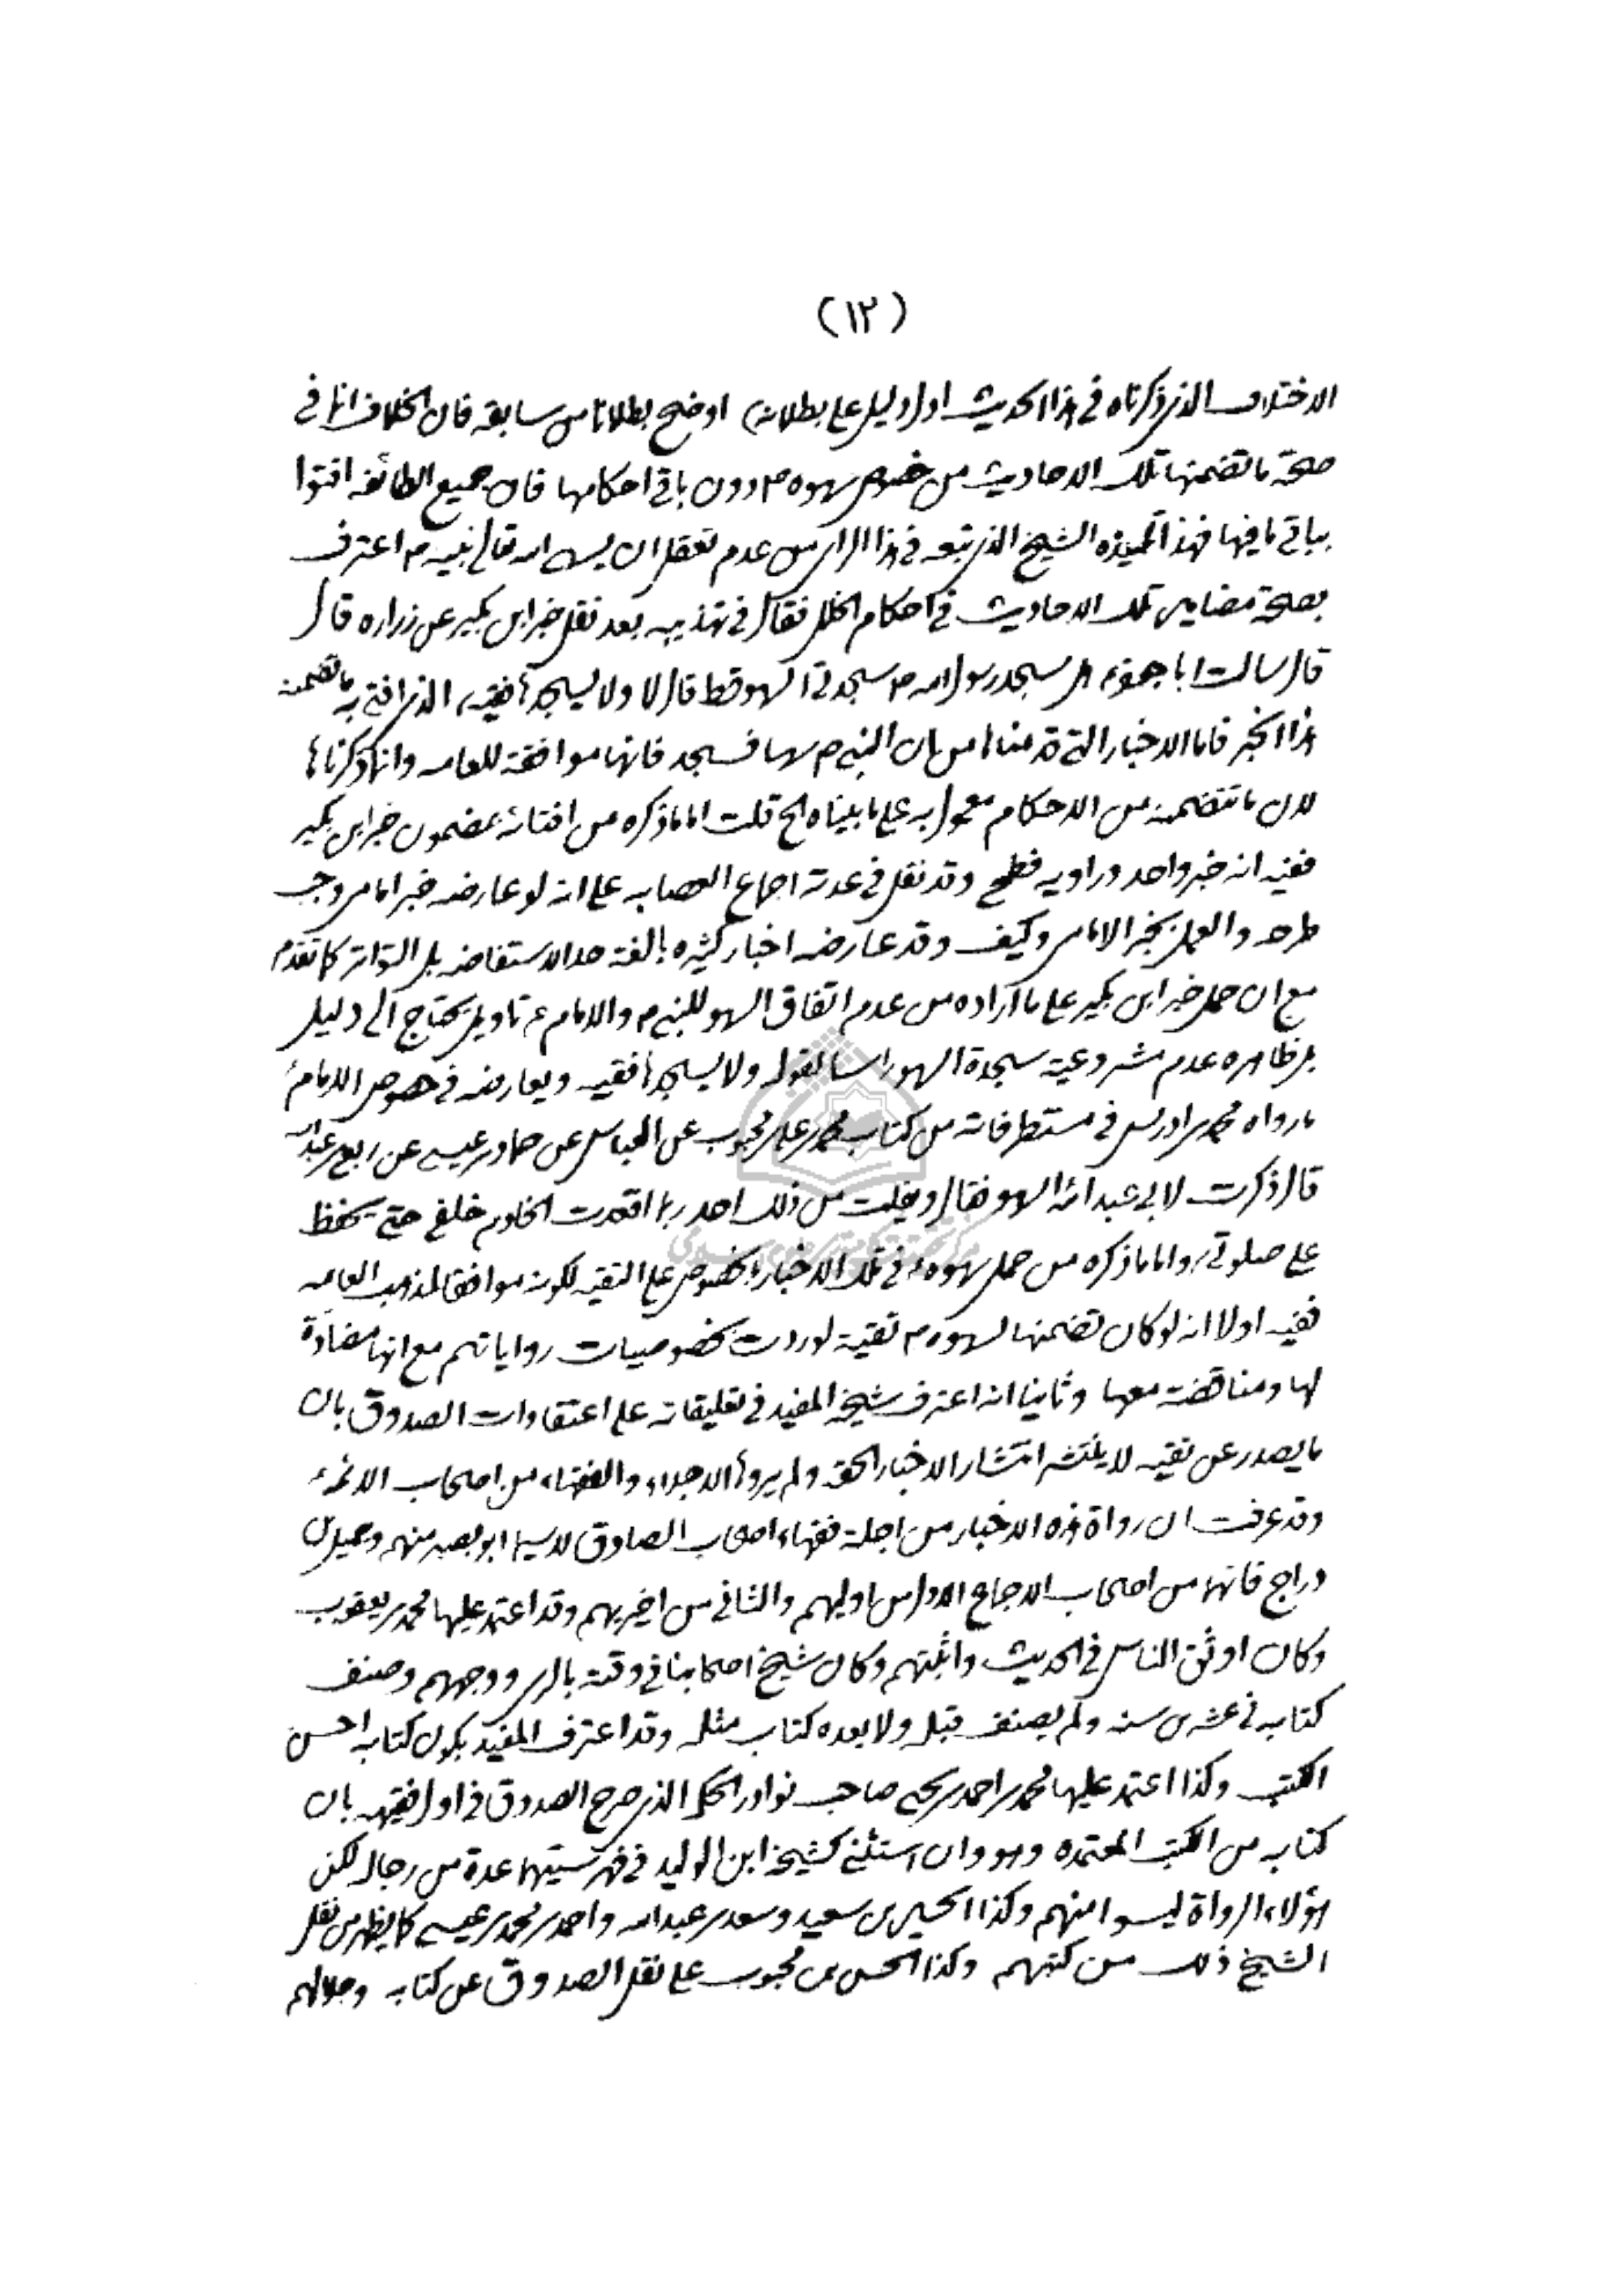 (١٢)
الاختلاف الذي ذكرناه في هذا الحديث ادل دليل على بطلانه) اوضح بطلانا من سابقه فان الخلاف انما في
صحة ما تضمنها تلك الاحاديث من خصوص سهوه ص دون باقي احكامها فان جميع الطائفة افتوا
بباقي ما فيها فهذا تلميذه الشيخ الذي تبعه في هذا الراي من عدم تعقل ان يسهى الله تعالى نبيه ص اعترف
بصحة مضامين تلك الاحاديث في احكام الخلل فقال في تهذيبه بعد نقل خبر ابن بكير عن زراره قال
قال سالت ابا جعفر ع هل سجد رسول الله ص سجدتي السهو قط قال لا ولا يسجدهما فقيه، الذي افتي به ما تضمنه
هذا الخبر فاما الاخبار التي قدمناها من ان النبي ص سها فسجد فانها موافقة للعامه وانما ذكرناها
لان ما تتضمنه من الاحكام معمول به على ما بيناه الخ قلت اما ما ذكره من افتائه بمضمون خبر ابن بكير
ففيه انه خبر واحد وراويه فطحي وقد نقل في عدته اجماع العصابه على انه لو عارضه خبر امامي وجب
طرحه والعمل بخبر الامامي وكيف وقد عارضه اخبار كثيره بالغة حد الاستفاضه بل التواتر كما تقدم
مع ان حمل خبر ابن بكير على ما اراده من عدم اتفاق السهو للنبي ص والامام ع تاويل يحتاج الى دليل
بل ظاهره عدم مشروعية سجدة السهو راسا لقوله ولا يسجدهما فقيه ويعارضه في خصوص الامام ع
ما رواه محمد بن ادريس في مستطرفاته من كتاب محمد بن علي بن محبوب عن العباس عن حماد بن عيسى عن ربعي بن عبدالله
قال ذكرت لابي عبدالله السهو فقال ويفلت من ذلك احد ربما اقعدت الخادم خلفي حتى يحفظ
على صلوتي، واما ما ذكره من حمل سهوه ع في تلك الاخبار بالخصوص على التقيه لكونه موافقا لمذهب العامه
ففيه اولا انه لو كان تضمنها لسهوه ص تقية لوردت بخصوصيات رواياتهم مع انها مضادة
لها ومناقضة معها وثانيا انه اعترف شيخه المفيد في تعليقاته على اعتقادات الصدوق بان
ما يصدر عن تقيه لا ينتشر انتشار الاخبار الحقه ولم يروها الاجلاء والفقهاء من اصحاب الائمه ع
وقد عرفت ان رواة هذه الاخبار من اجلة فقهاء اصحاب الصادق لاسيما ابو بصير منهم وجميل بن
دراج فانهما من اصحاب الاجماع الاول من اوليهم والثاني من اخيريهم وقد اعتمد عليها محمد بن يعقوب
وكان اوثق الناس في الحديث واثبتهم وكان شيخ اصحابنا في وقته بالري ووجههم وصنف
كتابه في عشرين سنه ولم يصنف قبله ولا بعده كتاب مثله وقد اعترف المفيد بكون كتابه احسن
الكتب وكذا اعتمد عليها محمد بن احمد بن يحيى صاحب نوادر الحكمه الذي صرح الصدوق في اول فقيهه بان
كتابه من الكتب المعتمده وهو وان استثنى كشيخه ابن الوليد في فهرستيهما عدة من رجاله لكن
هؤلاء الرواة ليسوا منهم وكذا الحسين بن سعيد وسعد بن عبدالله واحمد بن محمد بن عيسى كما يظهر من نقل
الشيخ ذلك من كتبهم وكذا الحسن بن محبوب على نقل الصدوق عن كتابه وجلالهم